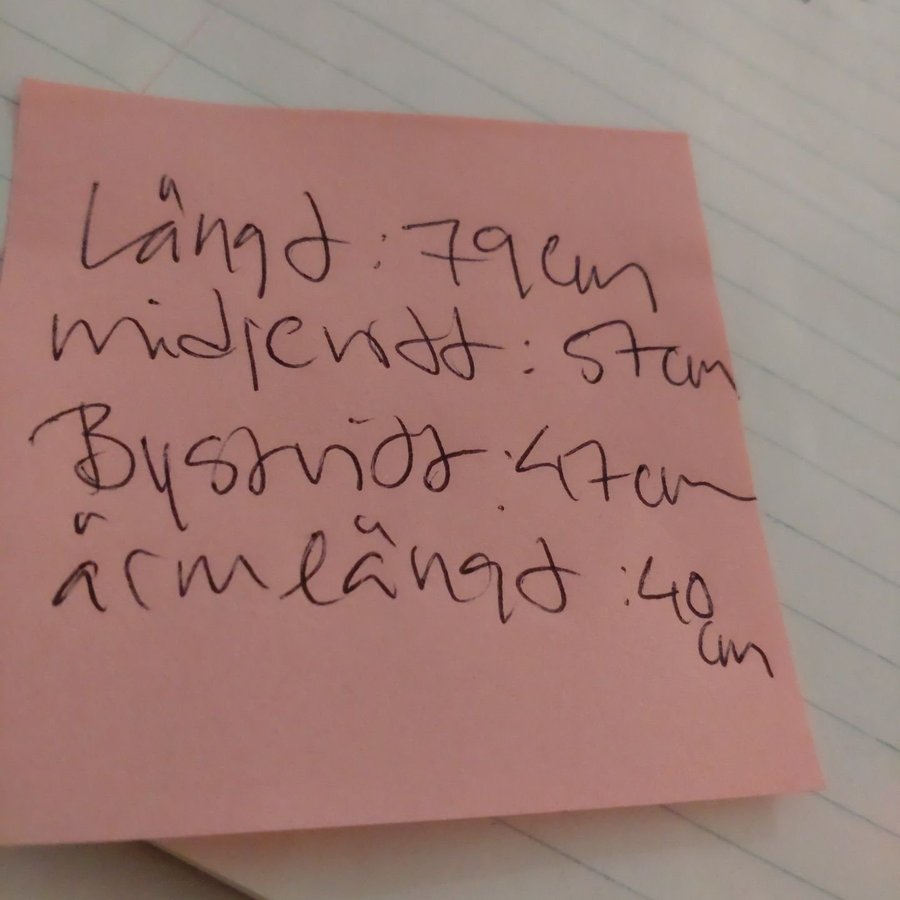 Längt: 79cm
midjevitt: 57cm
Bystvitt: 47cm
ärmelängt: 40
cm